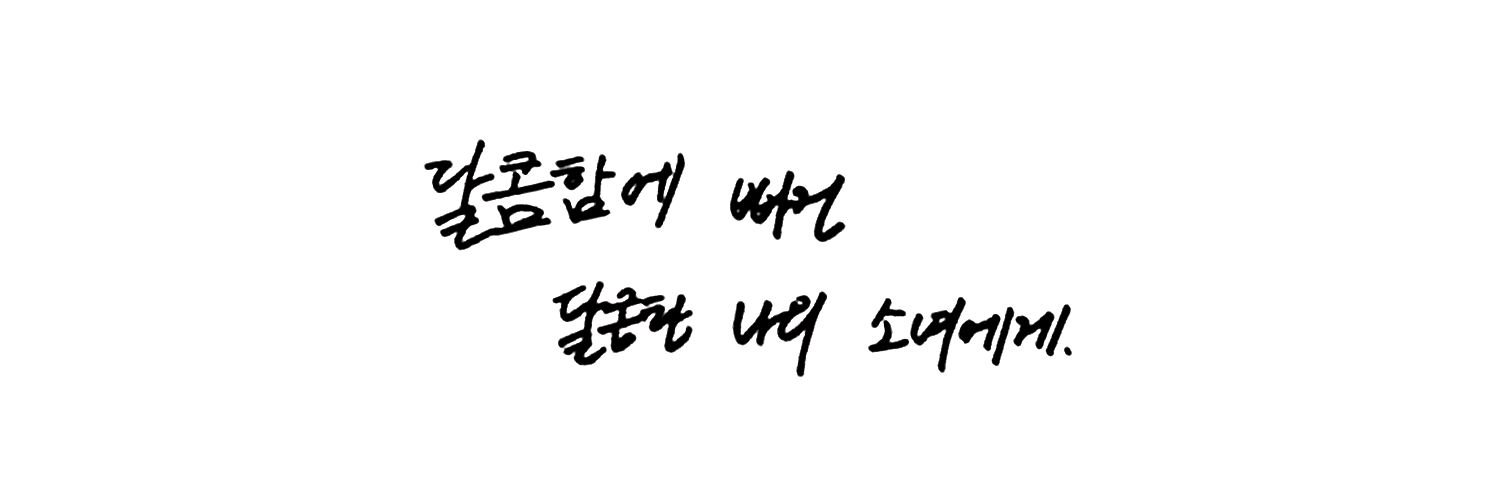 달콤함에 빠진
달큰한 나의 소녀에게.